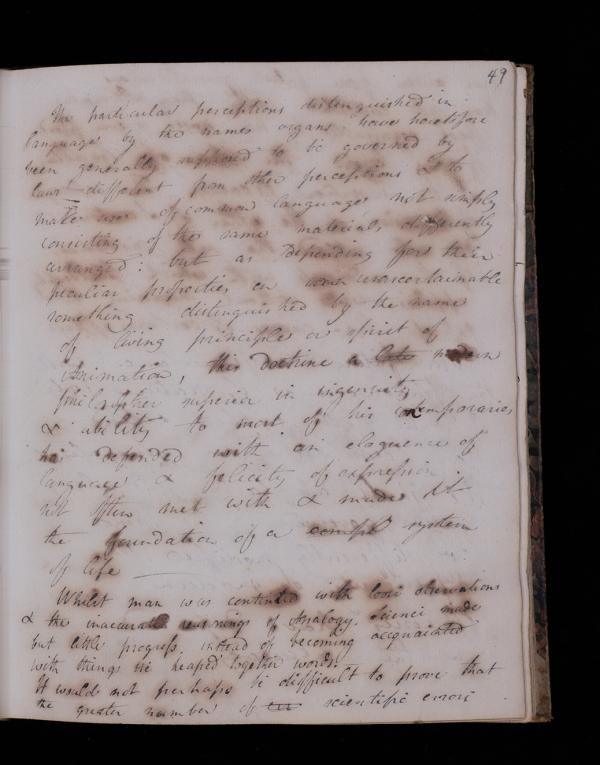 49
The particular perceptions distinguished in
language by the names organs have heretofore
been generally supposed to be governed by
laws different from other perceptions & to
make use of common language not simply
consisting of the same materials differently
arranged: but as depending for their
peculiar properties on unascertainable
something distinguished by the name
of living principle or spirit of
Animation, this doctrine a late modern
philosopher superior in ingenuity
& ability to most of his contemporaries
has defended with an eloquence of
language & felicity of expression
not often met with & made it
the foundation of a compl system
of life
Whilst man was contented with loose observations
& the inaccurate reasonings of Analogy. Science made
but little progress. instead of becoming acquainted
with things we heaped together words.
It would not perhaps be difficult to prove that
the greater number of scientific errors